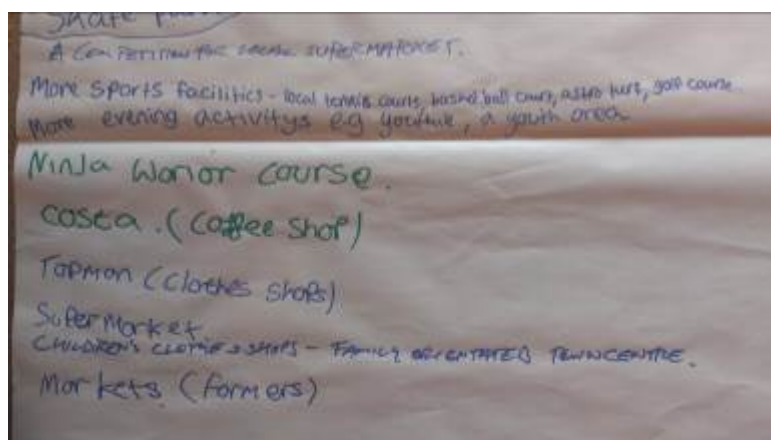 Skate
A COMPETITION FOR LOCAL SUPERMARKET.
More sports facilities - local tennis courts, basket ball court, astro turf, golf course.
More evening activitys eg , a youth area
Ninja Warior course.
costa . (coffee shop)
Topman (clothes shops)
Supermarket
CHILDREN'S CLOTHES SHOPS - FAMILY ORIENTATED TOWN CENTRE.
Markets (farmers)